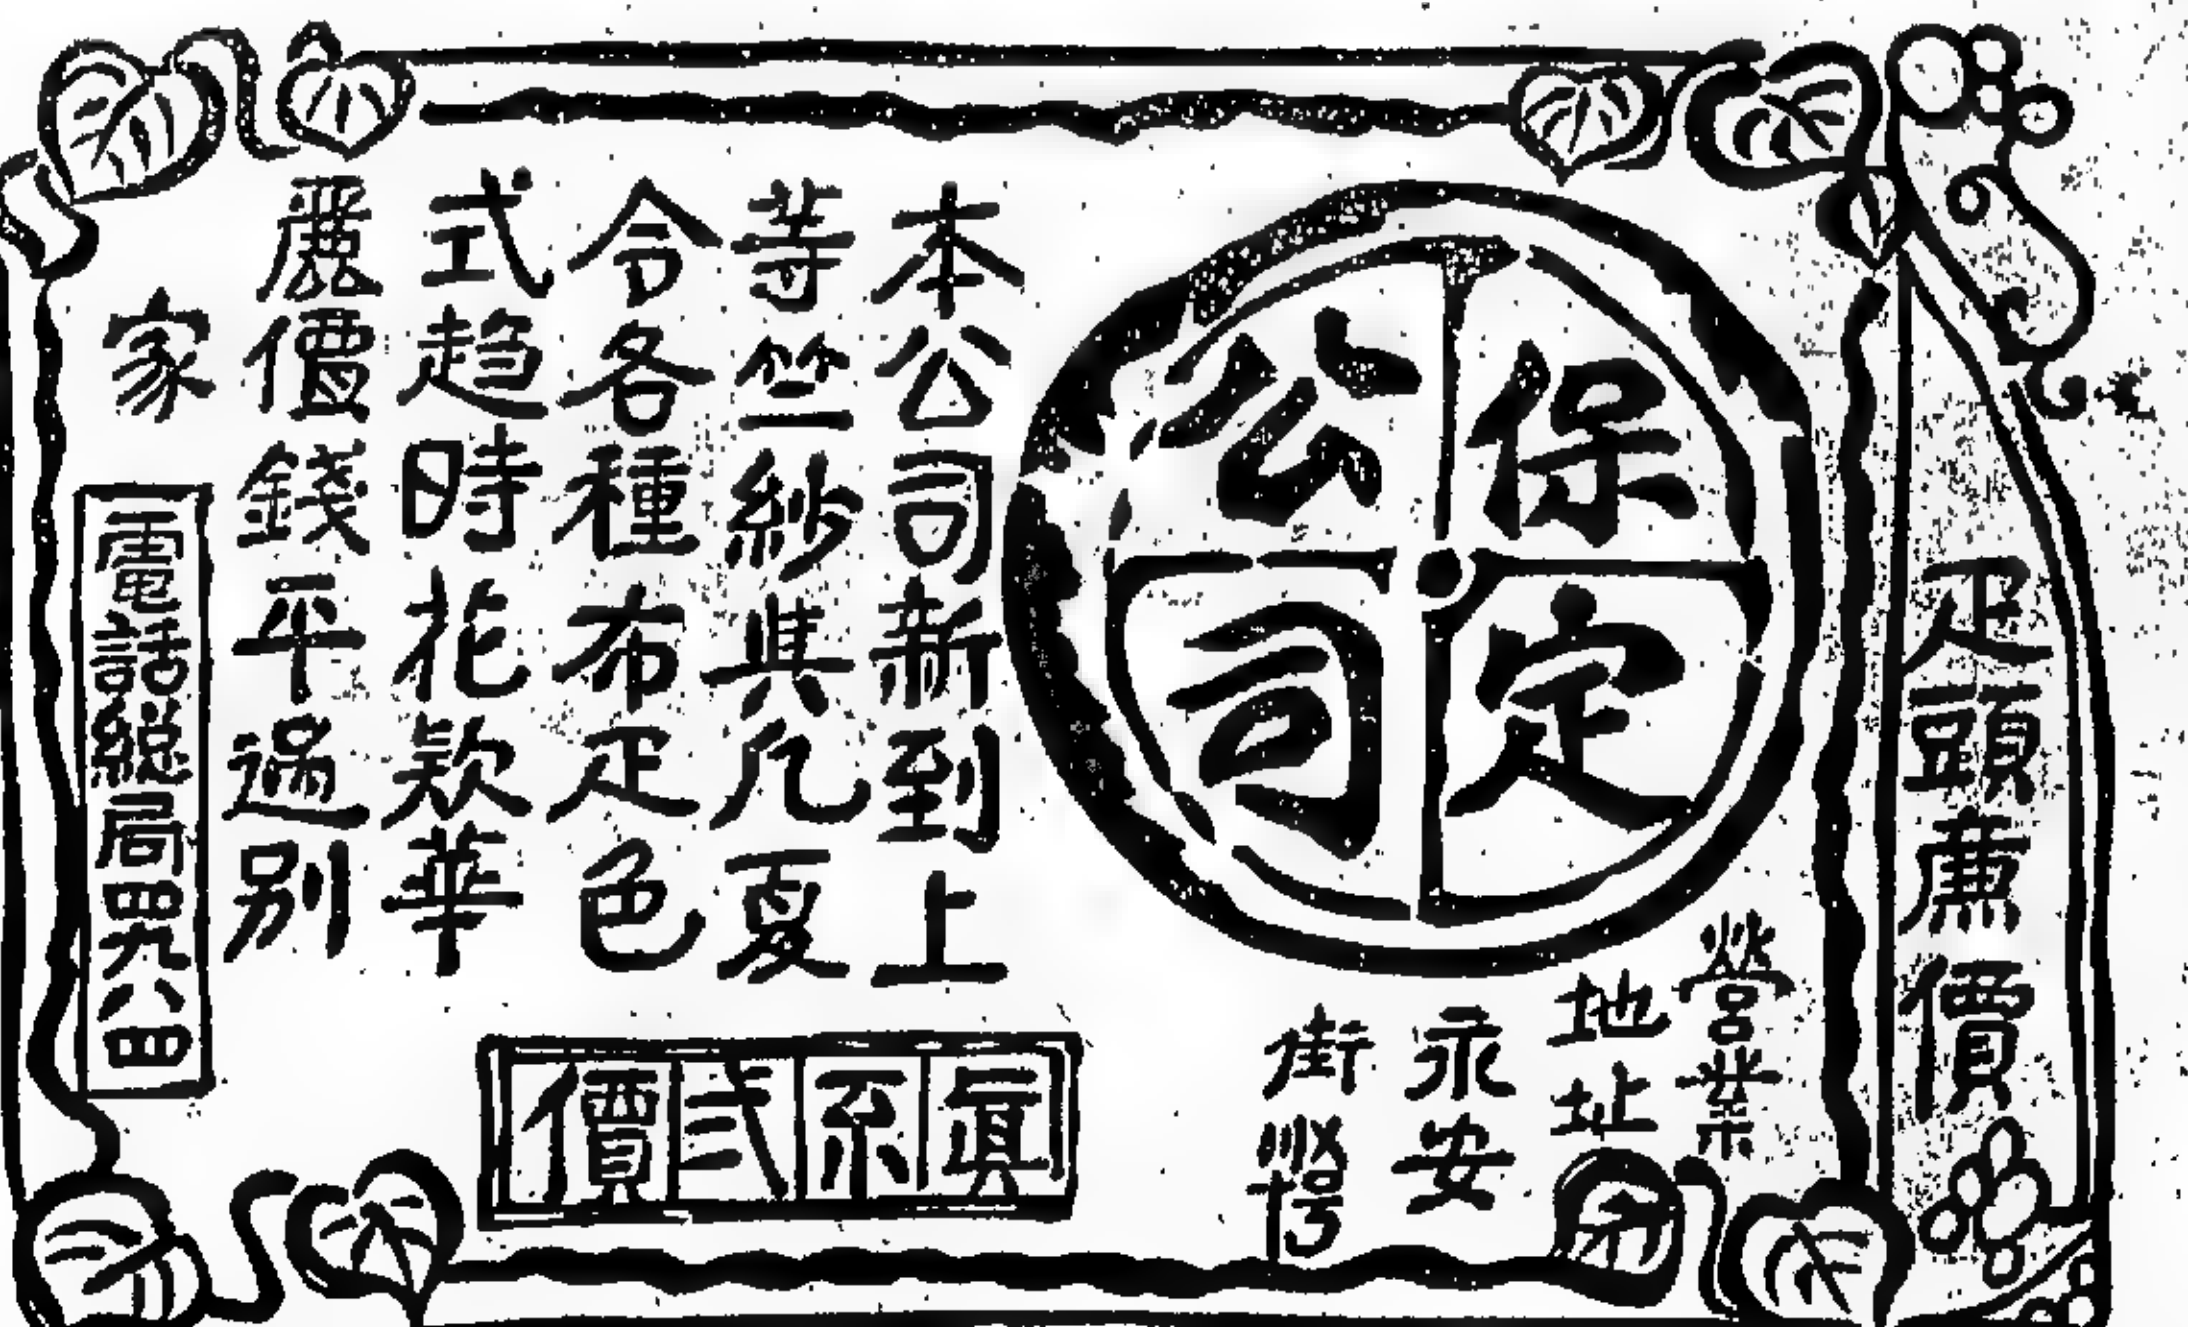 疋頭廉價
保定
公司
營業
地址
永安
街〣〤十号
本公司新到上
等竺紗其凢夏
令各種布疋色
式趋時花欵華
麗價錢平過別
家
眞不弍價
電話總局四九八四